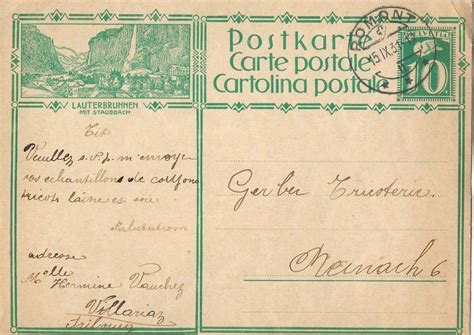 Postkarte
Carte postale
Cartolina postale
ROMONT
15.IX.3
HELVETIA
10
LAUTERBRUNNEN
MIT STAUBBACH
Veuillez s.v.p. m'envoyer
vos échantillons de
tricots laine et soie
Salutations
adresse
Melle Hermine Vauchey
Villariaz
Fribourg
Gerber
Reinach 6